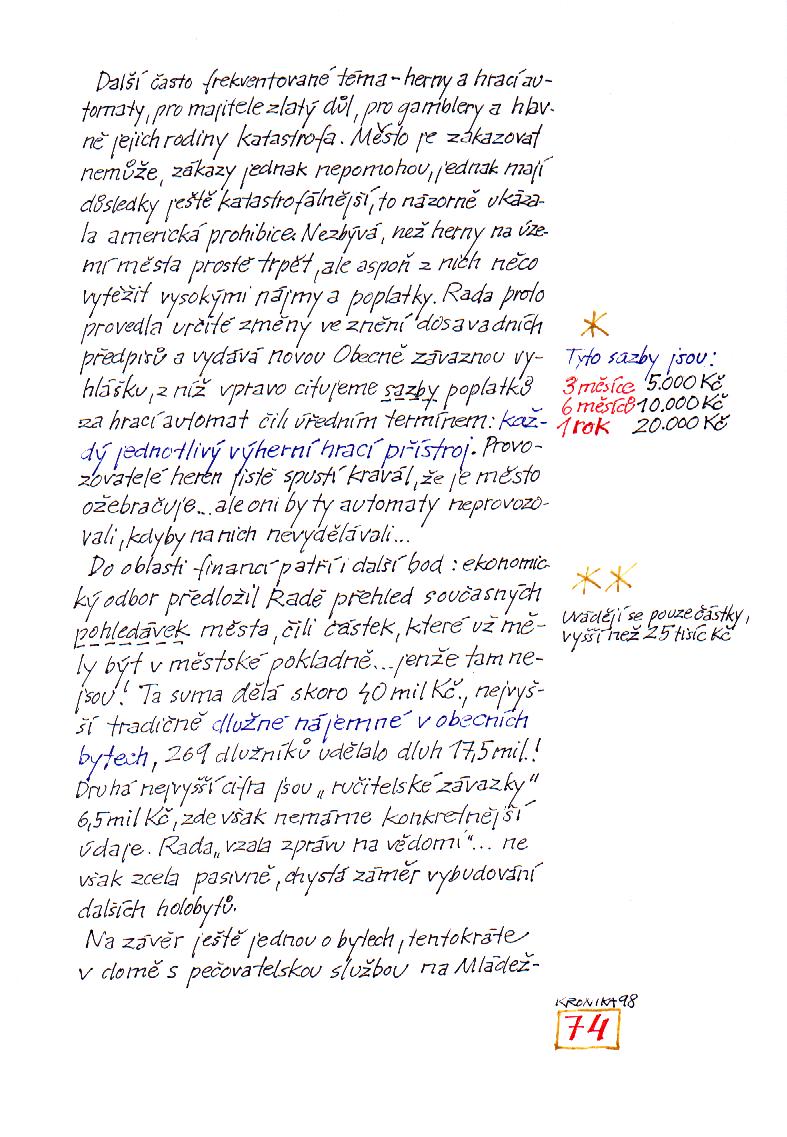 Další často frekventované téma - herny a hrací au-
tomaty, pro majitele zlatý důl, pro gamblery a hlav-
ně jejich rodiny katastrofa. Město je zakazovat
nemůže, zákazy jednak nepomohou, jednak mají
důsledky ještě katastrofálnější, to názorně ukáza-
la americká prohibice. Nezbývá, než herny na úze-
mí města prostě trpět, ale aspoň z nich něco
vytěžit vysokými nájmy a poplatky. Rada proto
provedla určité změny ve znění dosavadních
předpisů a vydává novou Obecně závaznou vy-
hlášku, z níž vpravo citujeme sazby poplatků
za hrací automat čili úředním termínem: kaž-
dý jednotlivý výherní hrací přístroj. Provo-
zovatelé heren jistě spustí kravál, že je město
ožebračuje... ale oni by ty automaty neprovozo-
vali, kdyby na nich nevydělávali...
Do oblasti financí patří i další bod: ekonomic-
ký odbor předložil Radě přehled současných
pohledávek města, čili částek, které už mě-
ly být v městské pokladně... jenže tam ne-
jsou! Ta suma dělá skoro 40 mil Kč, nejvyš-
ší tradičně dlužné nájemné v obecních
bytech, 269 dlužníků udělalo dluh 17,5 mil.!
Druhá nejvyšší cifra jsou „ručitelské závazky"
6,5 mil Kč, zde však nemáme konkretnější
údaje. Rada „vzala zprávu na vědomí"... ne
však zcela pasivně, chystá záměr vybudování
dalších holobytů.
Na závěr ještě jednou o bytech, tentokráte
v domě s pečovatelskou službou na Mládež-
*
Tyto sazby jsou:
3 měsíce 5.000 Kč
6 měsíců 10.000 Kč
1 rok 20.000 Kč
**
Uvádějí se pouze částky,
vyšší než 25 tisíc Kč
KRONIKA 98
74